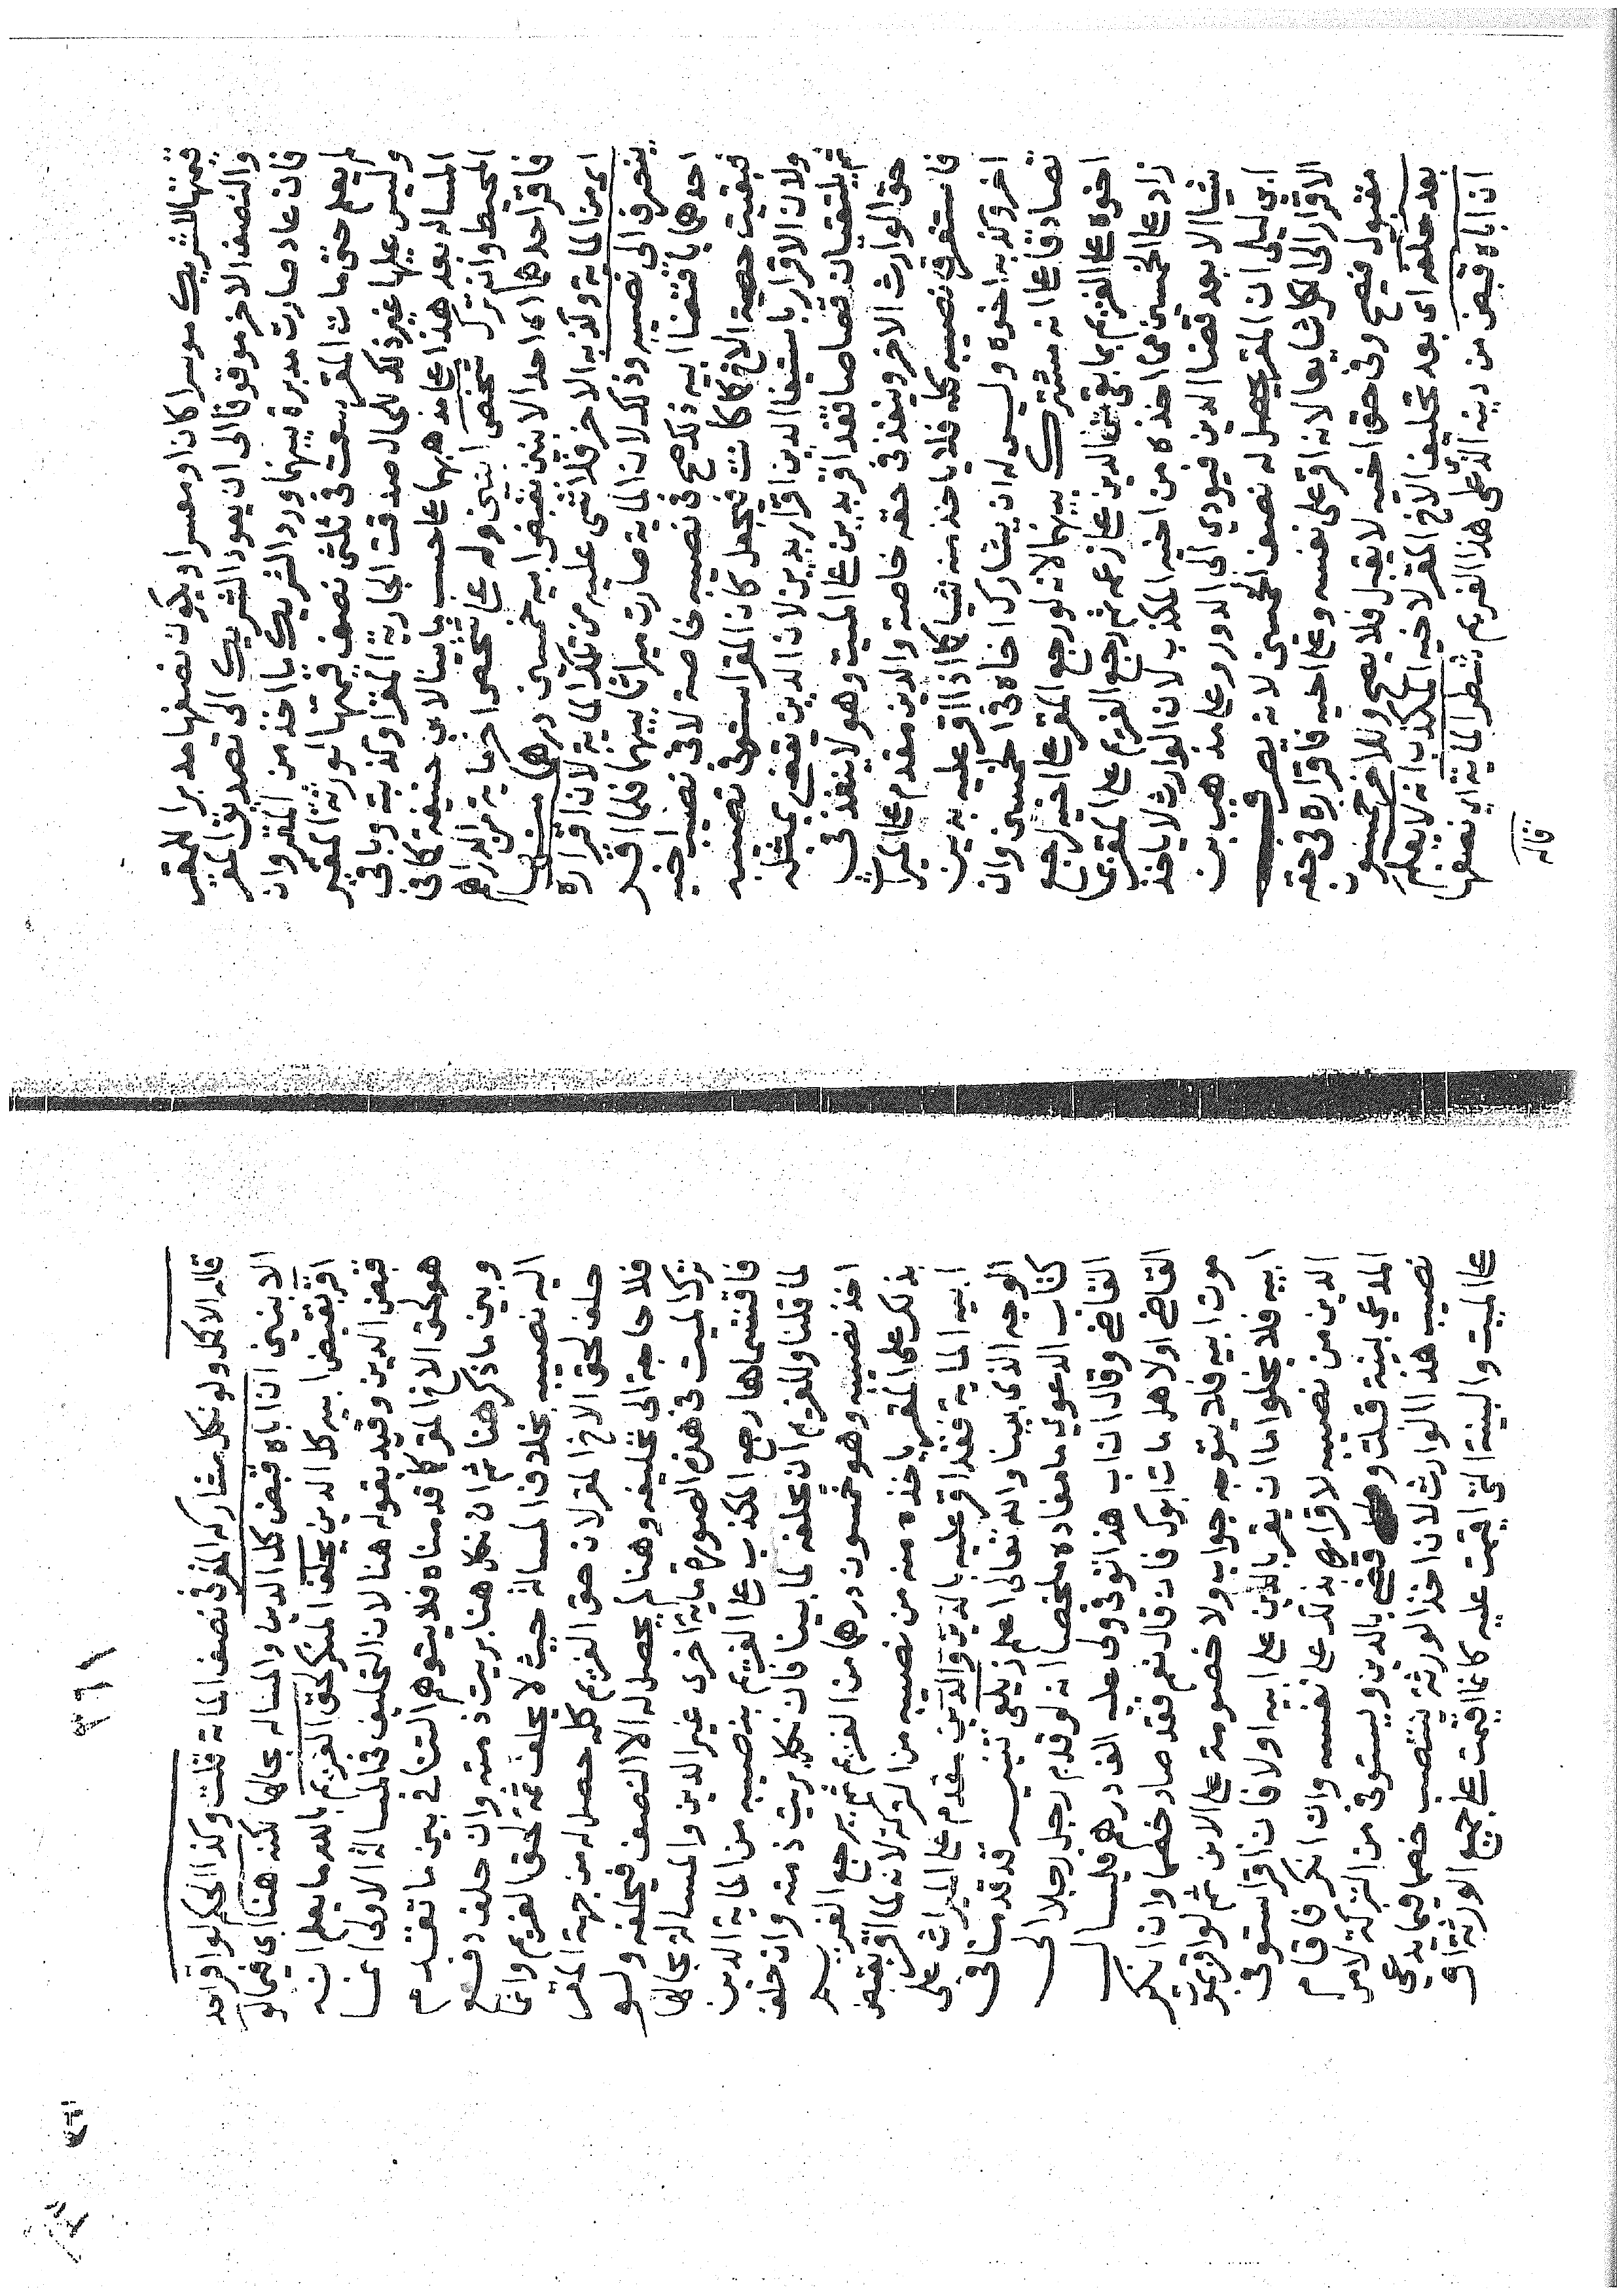 قيمتها لا شريك موسرا كان او معسرا ويكون نصفها مدبرا للمقر
والنصف الاخر موقوفا الى ان يعود الشريك الى تصديق المقر
فان عاد صارت مدبرة بينهما ورد الشريك ما اخذ من المقر وان
لم يعد حتى مات المقر سعت في ثلثي نصف قيمتها لورثة المقر
وليس عليها غير ذلك للحال صدقت الجارية المقر او كذبته وباقي
المسالة بعد هذا على مذهبهما على حسب ما بينا لابي حنيفة كما في
المحيط وان ترك شخص ابنين وله على شخص اخر ماية من الدراهم
فاقر احدهما اى احد الابنين بقبض ابيه خمسين درهما منها
اى من الماية وكذبه الاخر فلا شى عليه من تلك الماية لان اقراره
ينصرف الى نصيبه وذلك لان الماية صارت ميراثا بينهما فلما اقر
احدهما باقتضا ابيه ذلك صح في نصيبه خاصة لا في نصيب اخيه
فبقيت حصة الاخ كما كانت فيجعل كان المقر استوفى نصيبه
ولان الاقرار باستيفا الدين اقرار بدين لان الدين تقضى بمثله
ثم يلتقيان قصاصا فقد اقر بدين على الميت وهو لا ينفذ في
حق الوارث الاخر وينفذ في حقه خاصة والدين مقدم على الميراث
فاستغرق نصيبه كله فلا ياخذ منه شيا كما اذا اقر عليه بدين
اخر وكذبه اخوه وليس له ان يشارك اخاه في الخمسين وان
تصادقا على انه مشترك بينهما لانه لو رجع المقر على اخيه لرجع
اخوه على الغريم بما بقى من الدين على زعمه ثم رجع الغريم على المقر بما
زاد على الخمسين مما اخذه من اخيه المكذب لان الوارث لا ياخذ
شيا الا بعد قضا الدين فيودي الى الدور وعلى مذهب ابن
ابي ليلى ان المقر يحصل له نصف الخمسين لانه يصرف
الاقرار الى الكل شايعا لانه اقر على نفسه وعلى اخيه فاقراره في حقه
مقبول فيصح وفي حق اخيه لا يقبل فلا يصح وللاخر خمسون
بعد حلفه اى بعد تحليف الاخ المقر لاخيه المكذب انه لا يعلم
ان اباه قبض من دينه الذي على هذا الغريم شطر الماية اى نصفها
قاله
٣٦١
قاله الاكمل ولو نكل شاركه المقر في نصف الماية قلت وكذا الحكم لو اقر احد
الابنين ان اباه قبض كل الدين والمسالة بحالها لكنه هنا اى فيما لو
اقر بقبض ابيه كل الدين يحلف المنكر لحق الغريم بالله ما يعلم انه
قبض الدين وقيد بقوله هنا لان التحليف في المسالة الاولى انما
هو لحق الاخ المقر كما قدمناه فلا يتوهم التنافي بين ما تقدم
وبين ما ذكر هنا ثم ان نكل هنا بريت ذمته وان حلف دفع
اليه نصيبه بخلاف المسالة حيث لا يحلف ثمه لحق الغريم وانما
حلف لحق الاخ المقر لان حق الغريم كله حصل له من جهة المقر
فلا حاجة الى تحليفه وهنا لم يحصل له الا النصف فيحلفه ولو
ترك الميت في هذه الصورة ماية اخرى غير الدين والمسالة بحالها
فاقتسماها رجع المكذب على الغريم بنصيبه من الماية الدين
لما قلنا وللغريم ان يحلفه لما بينا فان نكل بريت ذمته وان حلف
اخذ نصيبه وهو خمسون درهما من الغريم ثم يرجع الغريم
بذلك على المقر ياخذه منه من نصيبه من التركة لانه لما اقر بقبض
ابيه الماية فقد اقر عليه بالدين والدين مقدم على الميراث على
الوجه الذي بينا والله تعالى اعلم زيلعي تنبيه قد قدمنا في
كتاب الدعوى ما مفاده ملخصا انه لو قدم رجل رجلا الى
القاضي وقال ان اب هذا توفى ولى عليه الف درهم فليسال
القاضي اولا هل مات ابوك فان قال نعم فقد صار خصما وان انكر
موت ابيه فلا يتوجه جواب ولا خصومة على الابن ثم لو اقر بموت
ابيه فلا يخلوا اما ان يقر بالدين على ابيه اولا فان اقر استوفى
الدين من نصيبه لاقراره بذلك على نفسه وان انكر فاقام
المدعي بينة قبلت وقضى بالدين ويستوفى من التركة لا من
نصيب هذا الوارث لان احد الورثة ينتصب خصما فيما يدعى
على الميت والبينة التي اقيمت عليه كانما اقيمت على جميع الورثة او